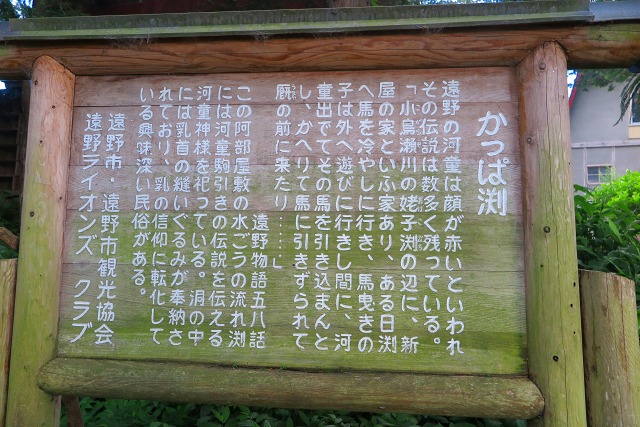 かっぱ渕
遠野の河童は顔が赤いといわれ
その伝説は数多く残っている。
「小烏瀬川の姥子渕の辺に、新
屋の家といふ家あり、ある日渕
へ馬を冷やしに行き、馬曳きの
子は外へ遊びに行きし間に、河
童出でてその馬を引き込まんと
し、かへりて馬に引きずられて
厩の前に来たり……」
遠野物語五八話
この阿部屋敷の水ごうの流れ渕
には河童駒引きの伝説を伝える
河童神様を祀っている。
の中
には乳首の縫いぐるみが奉納さ
れており、乳の信仰に転化して
いる興味深い民俗がある。
遠野市・遠野市観光協会
遠野ライオンズ クラブ